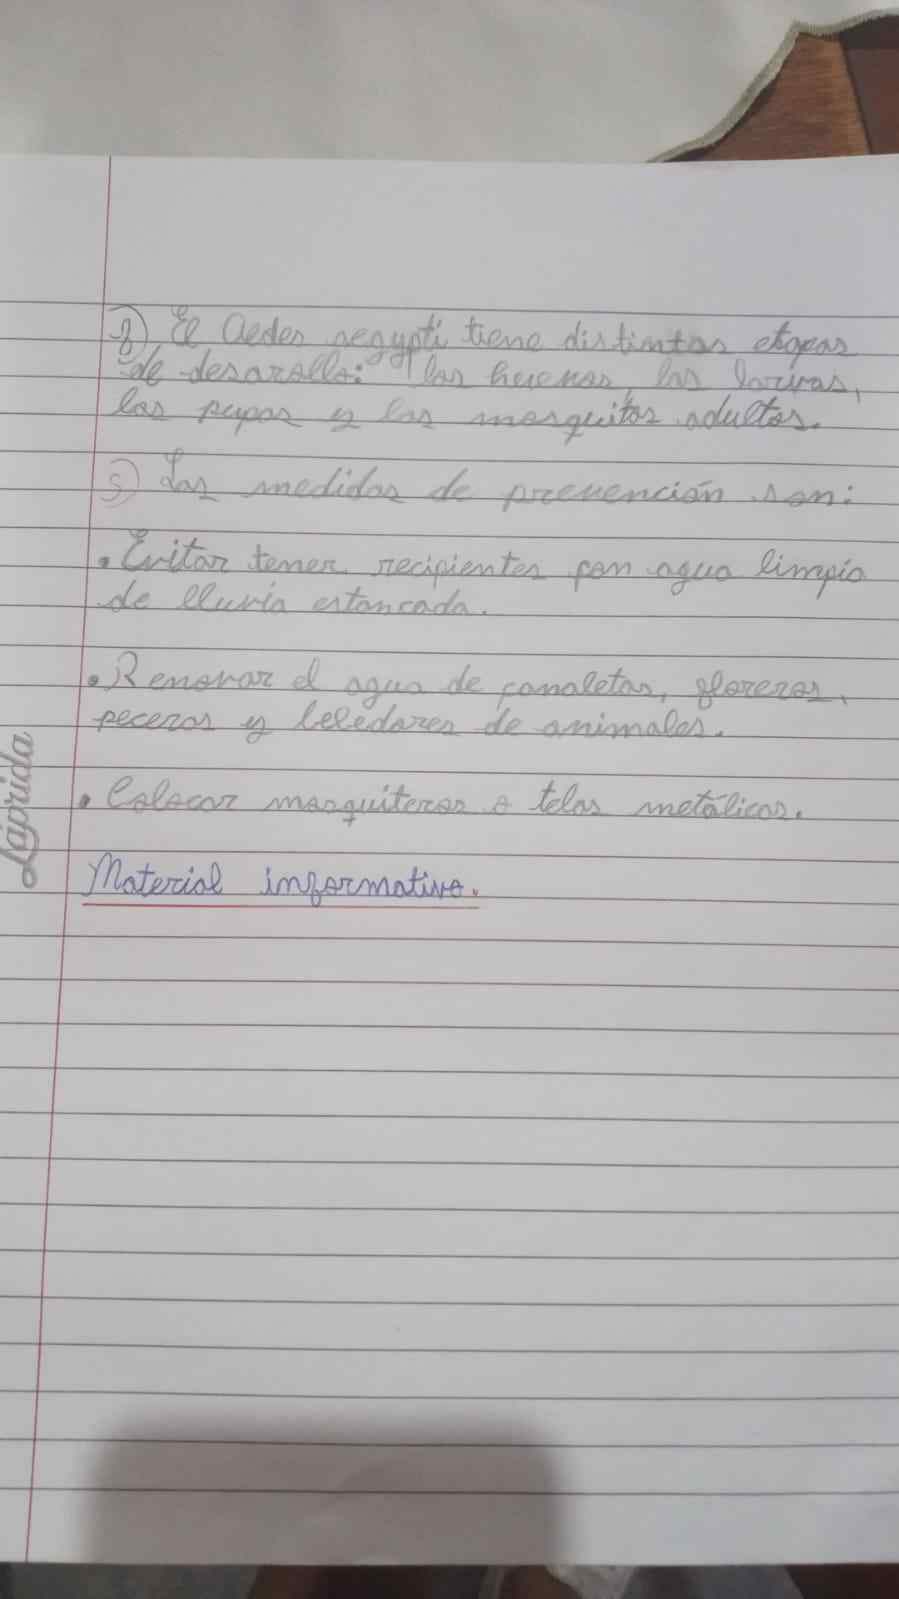 8) El Aedes aegypti tiene distintas etapas
de desarollo: los huevos, las larvas,
las pupas y los mosquitos adultos.
5) Las medidas de prevención son:
• Evitar tener recipientes con agua limpia
de lluvia estancada.
• Renovar el agua de canaletas, floreros,
peceras y bebedores de animales.
• Colocar mosquiteros o telas metálicas.
Material informativo.
Laprida